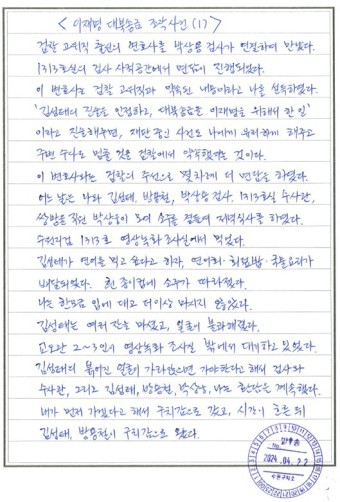 < 이재명 대북송금 조작사건 (1) >
검찰 고위직 출신의 변호사를 박상용 검사가 연결하여 만났다.
1313호실의 검사 사적공간에서 면담이 진행되었다.
이 변호사는 검찰 고위직과 약속된 내용이라고 나를 설득하였다.
'김성태의 진술을 인정하고, 대북송금을 이재명을 위해서 한 일'
이라고 진술해주면, 재판 중인 사건도 나에게 유리하게 해주고
주변 수사도 멈출 것을 검찰에서 약속했다는 것이다.
이 변호사와는 검찰의 주선으로 몇차례 더 면담을 하였다.
어느 날은 나와 김성태, 방용철, 박상용 검사, 1313호실 수사관,
쌍방울 직원 박상웅이 모여 소주를 곁들여 저녁식사를 하였다.
수원지검 1313호 영상녹화 조사실에서 먹었다.
김성태가 연어를 먹고 싶다고 하자, 연어회·회덮밥·국물요리가
배달되었다. 흰 종이컵에 소주가 따라졌다.
나는 한모금 입에 대고 더이상 마시지 않았다.
김성태는 여러 잔을 마셨고, 얼굴이 붉어졌다.
교도관 2~3인이 영상녹화 조사실 밖에서 대기하고 있었다.
김성태의 붉어진 얼굴이 가라앉으면 가야한다고 해서 검사와
수사관, 그리고 김성태, 방용철, 박상웅, 나는 환담을 계속했다.
내가 먼저 가겠다고 해서 구치감으로 갔고, 시간이 흐른 뒤
김성태, 방용철이 구치감으로 왔다.
2024. 04. 22
수원구치소